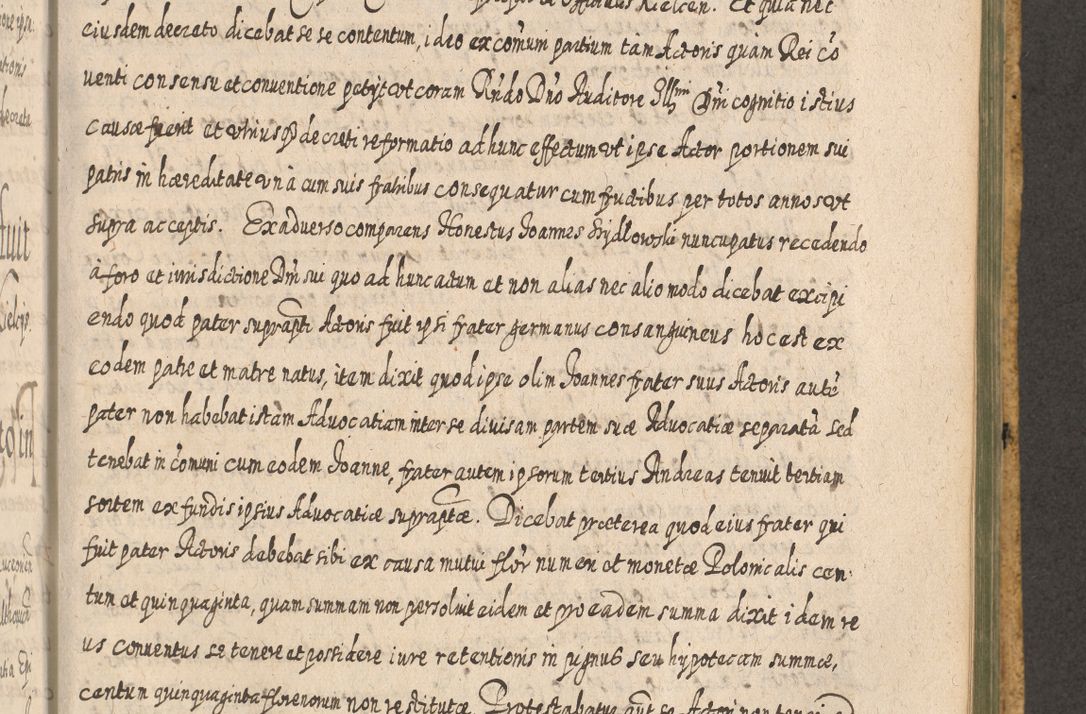 Officialis Kielcen. Et quia nec
eiusdem decreto dicebat se se contentum, ideo ex com̄uni partium tàm Actoris quàm Rei cō
venti consensu et conventione petijt vt coram Rn̄do Dn̄o Auditore Illmi Dn̄i cognitio istius
causæ fuerit et vnius decreti reformatio ad hunc effectum vt ipse Actor portionem sui
patris in hæreditate vnà cum suis fratribus consequatur cum fructibus per totos annos vt
supra acceptis. Ex adverso comparens Honestus Joannes nuncupatus recedendo
à foro et iurisdictione Dn̄i sui quo ad hunc actum et non alias nec alio modo dicebat excipi
endo quod pater suprapti Actoris fuit ipsi frater germanus consanguineus hoc est ex
eodem patre et matre natus, item dixit quod ipse olim Joannes frater suus Actoris autē
pater non habebat istam Advocatiam inter se divisam partem suæ Advocatiæ separatā sed
tenebat in com̄uni cum eodem Joanne, frater autem ipsorum tertius Andreas tenuit tertiam
sortem ex fundis ipsius Advocatiæ supraptæ. Dicebat præterea quod eius frater qui
fuit pater Actoris debebat sibi ex causa mutui flor numeri et monetæ Polonicalis cen
tum et quinquaginta, quam summam non persoluit eidem et pro eadem summa dixit idem re
us conventus se tenere et possidere iure retentionis in pignus seu hypotecam summæ,
centum quinquaginta florenorum non restitutæ Protestabatur se Actori non